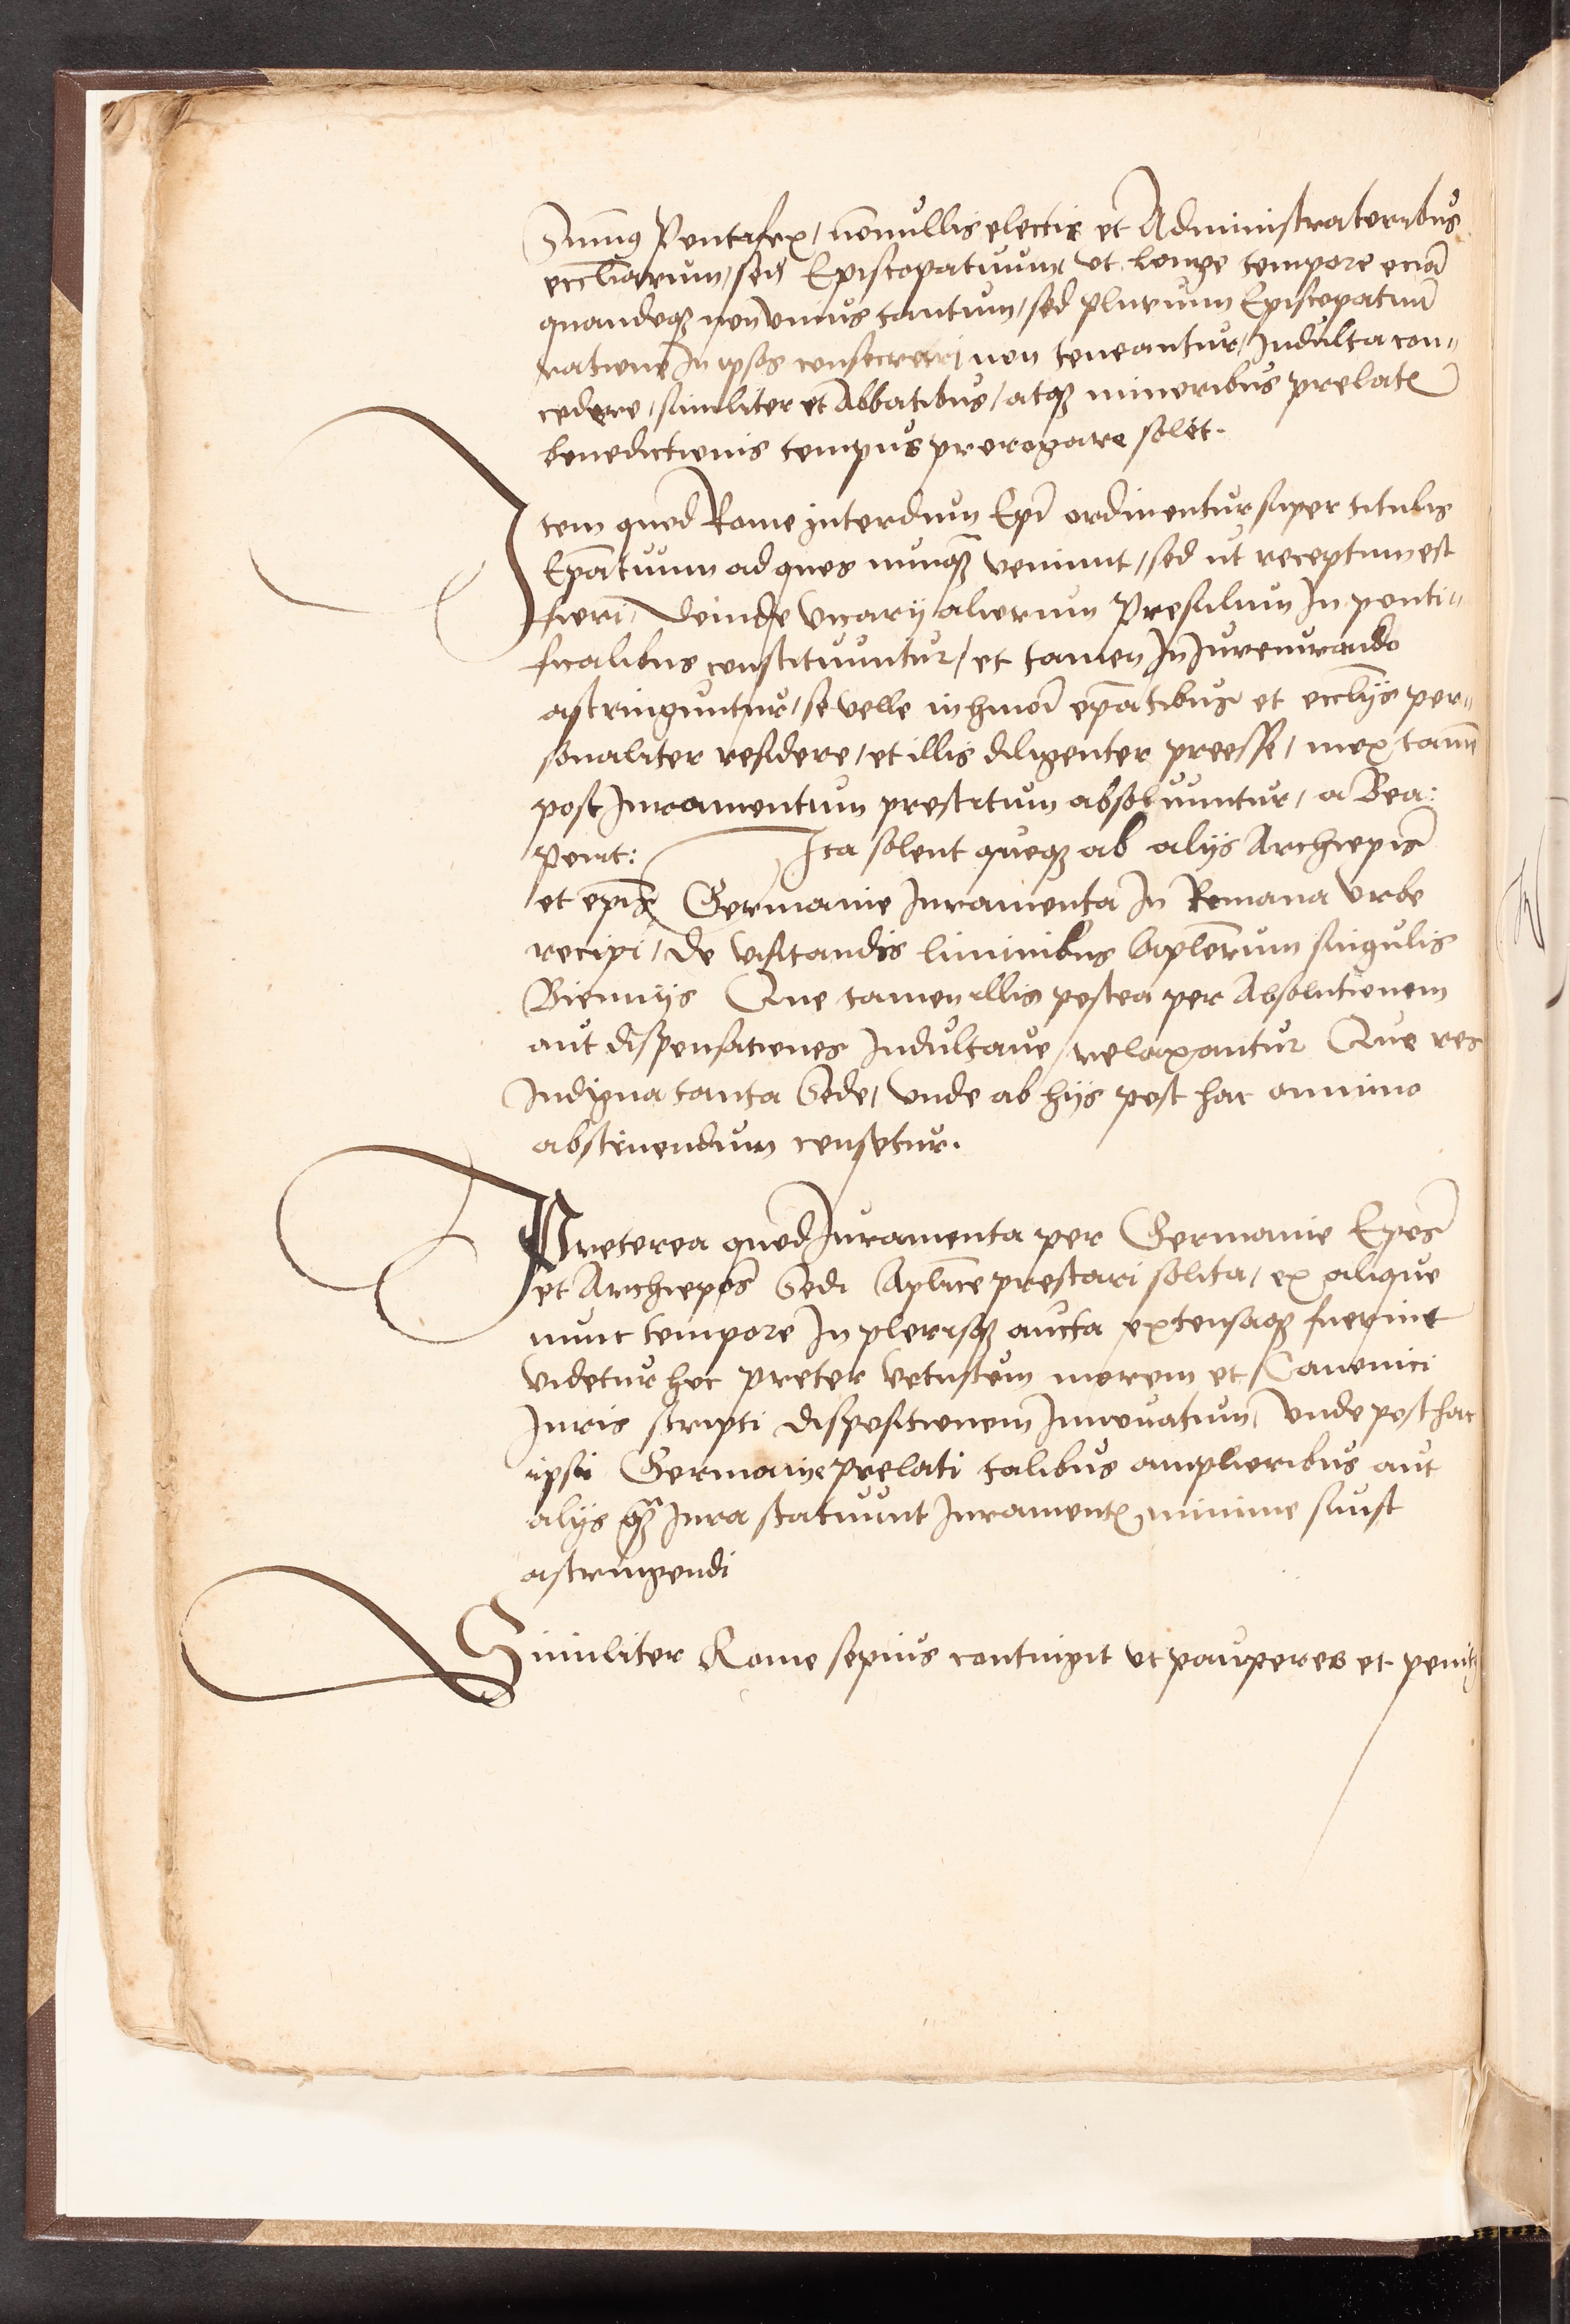 Summus Pontifex, nonullis electis et Administratoribus
eccliarum, seu Episcopatuum, ut longe tempore eciã
quandoq3 non unius tantum, sed plurium Episcopatuũ
ratione In ipsos consecrari, non teneantur, Indulta con„
cedere, similiter et Abbatibus, atq3 minoribus prelatẽ
benedictionis tempus prorogare solet.
Item quod Rome interdum Epi ordinentur super titulis
Epatuum ad quos nunq3 veniunt, sed ut receptum est
fieri, deinde vicarij aliorum Presulum In ponti„
ficalibus constituuntur, et tamen In Jureiurando
astringuntur, se velle in hmoi epatibus et ecclijs per„
sonaliter residere, et illis diligenter preesse, mox tamẽ
post Juramentum prestitum absoluuntur, a Bea:
Pont: Ita solent quoq3 ab alijs Archiepis
et epis Germanie Juramenta In Romana Urbe
recipi, de visitandis liminibus Aplorum singulis
Biennijs Que tamen illis postea per Absolutionem
aut dispensationes Indultaue, relaxantur Que res
Indigna tanta Sede, unde ab hijs post hac omnino
abstinendum censetur.
Preterea quod Juramenta per Germanie Epos
et Archiepos Sedi Aplice prestari solita, ex aliquo
nunc tempore In plerisq3 aucta extensaq3 fuerint
videtur hoc preter vetustum morem et Canonici
Juris scripti dispositionem Innouatum, unde post hac
ipsi Germanie prelati talibus amplioribus aut
alijs q3 Jura statuunt Juramentẽ minime sunt
astringendi
Similiter Rome sepius contingit ut pauperes et penit9